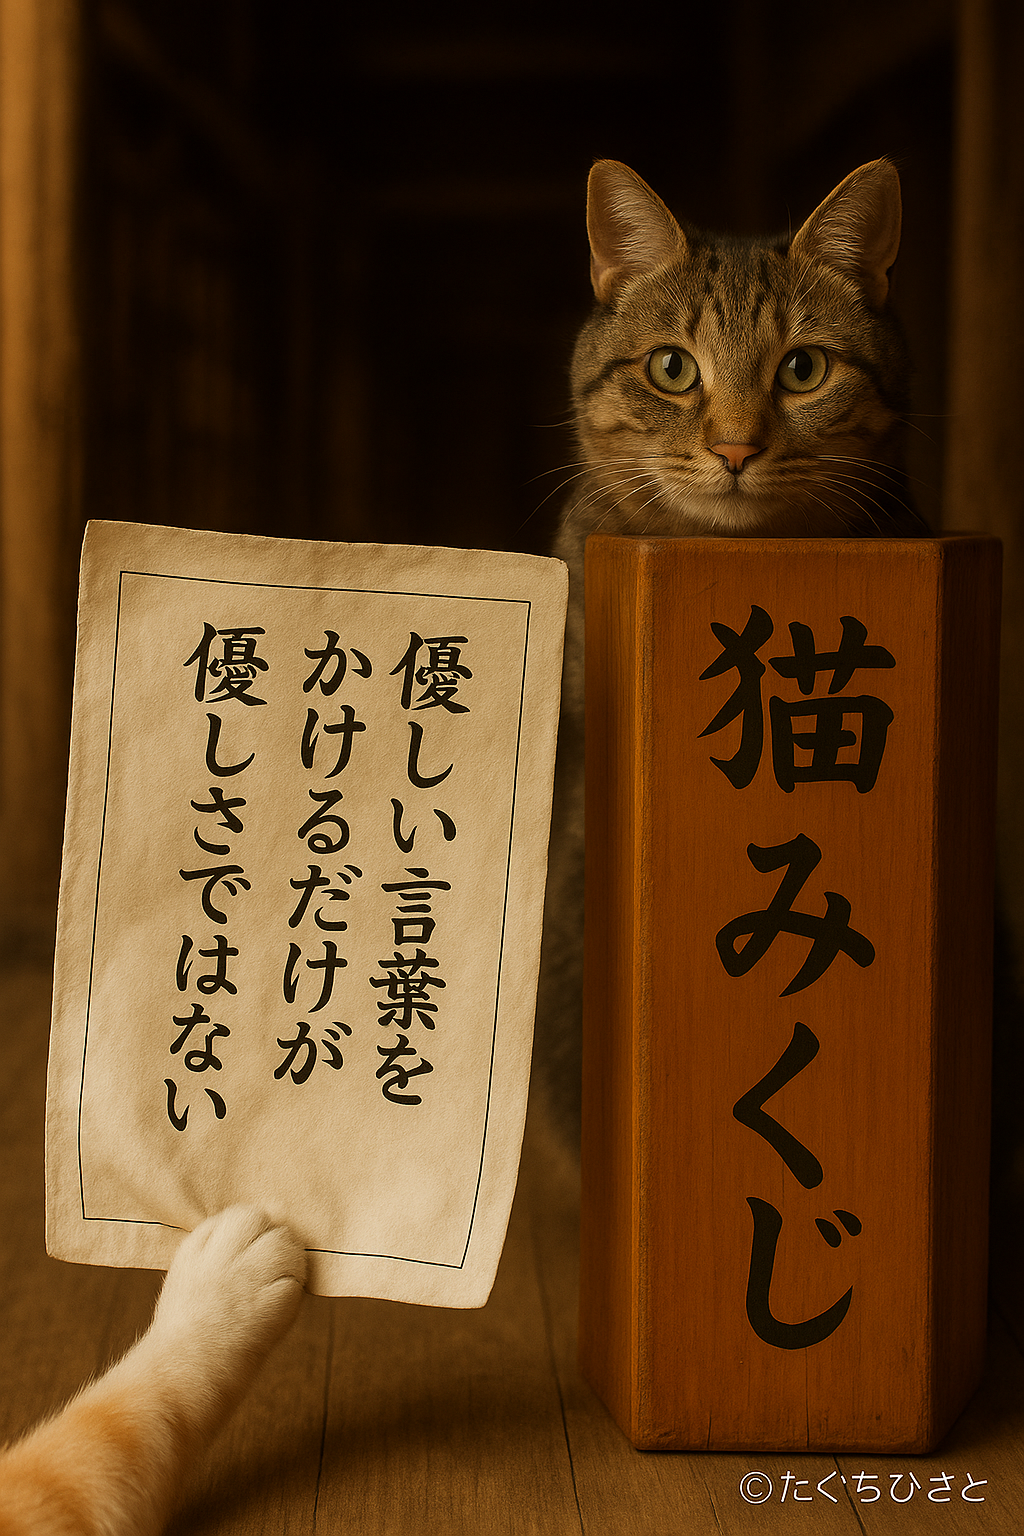 優しい言葉を
かけるだけが
優しさではない
猫みくじ
©たぐちひさと